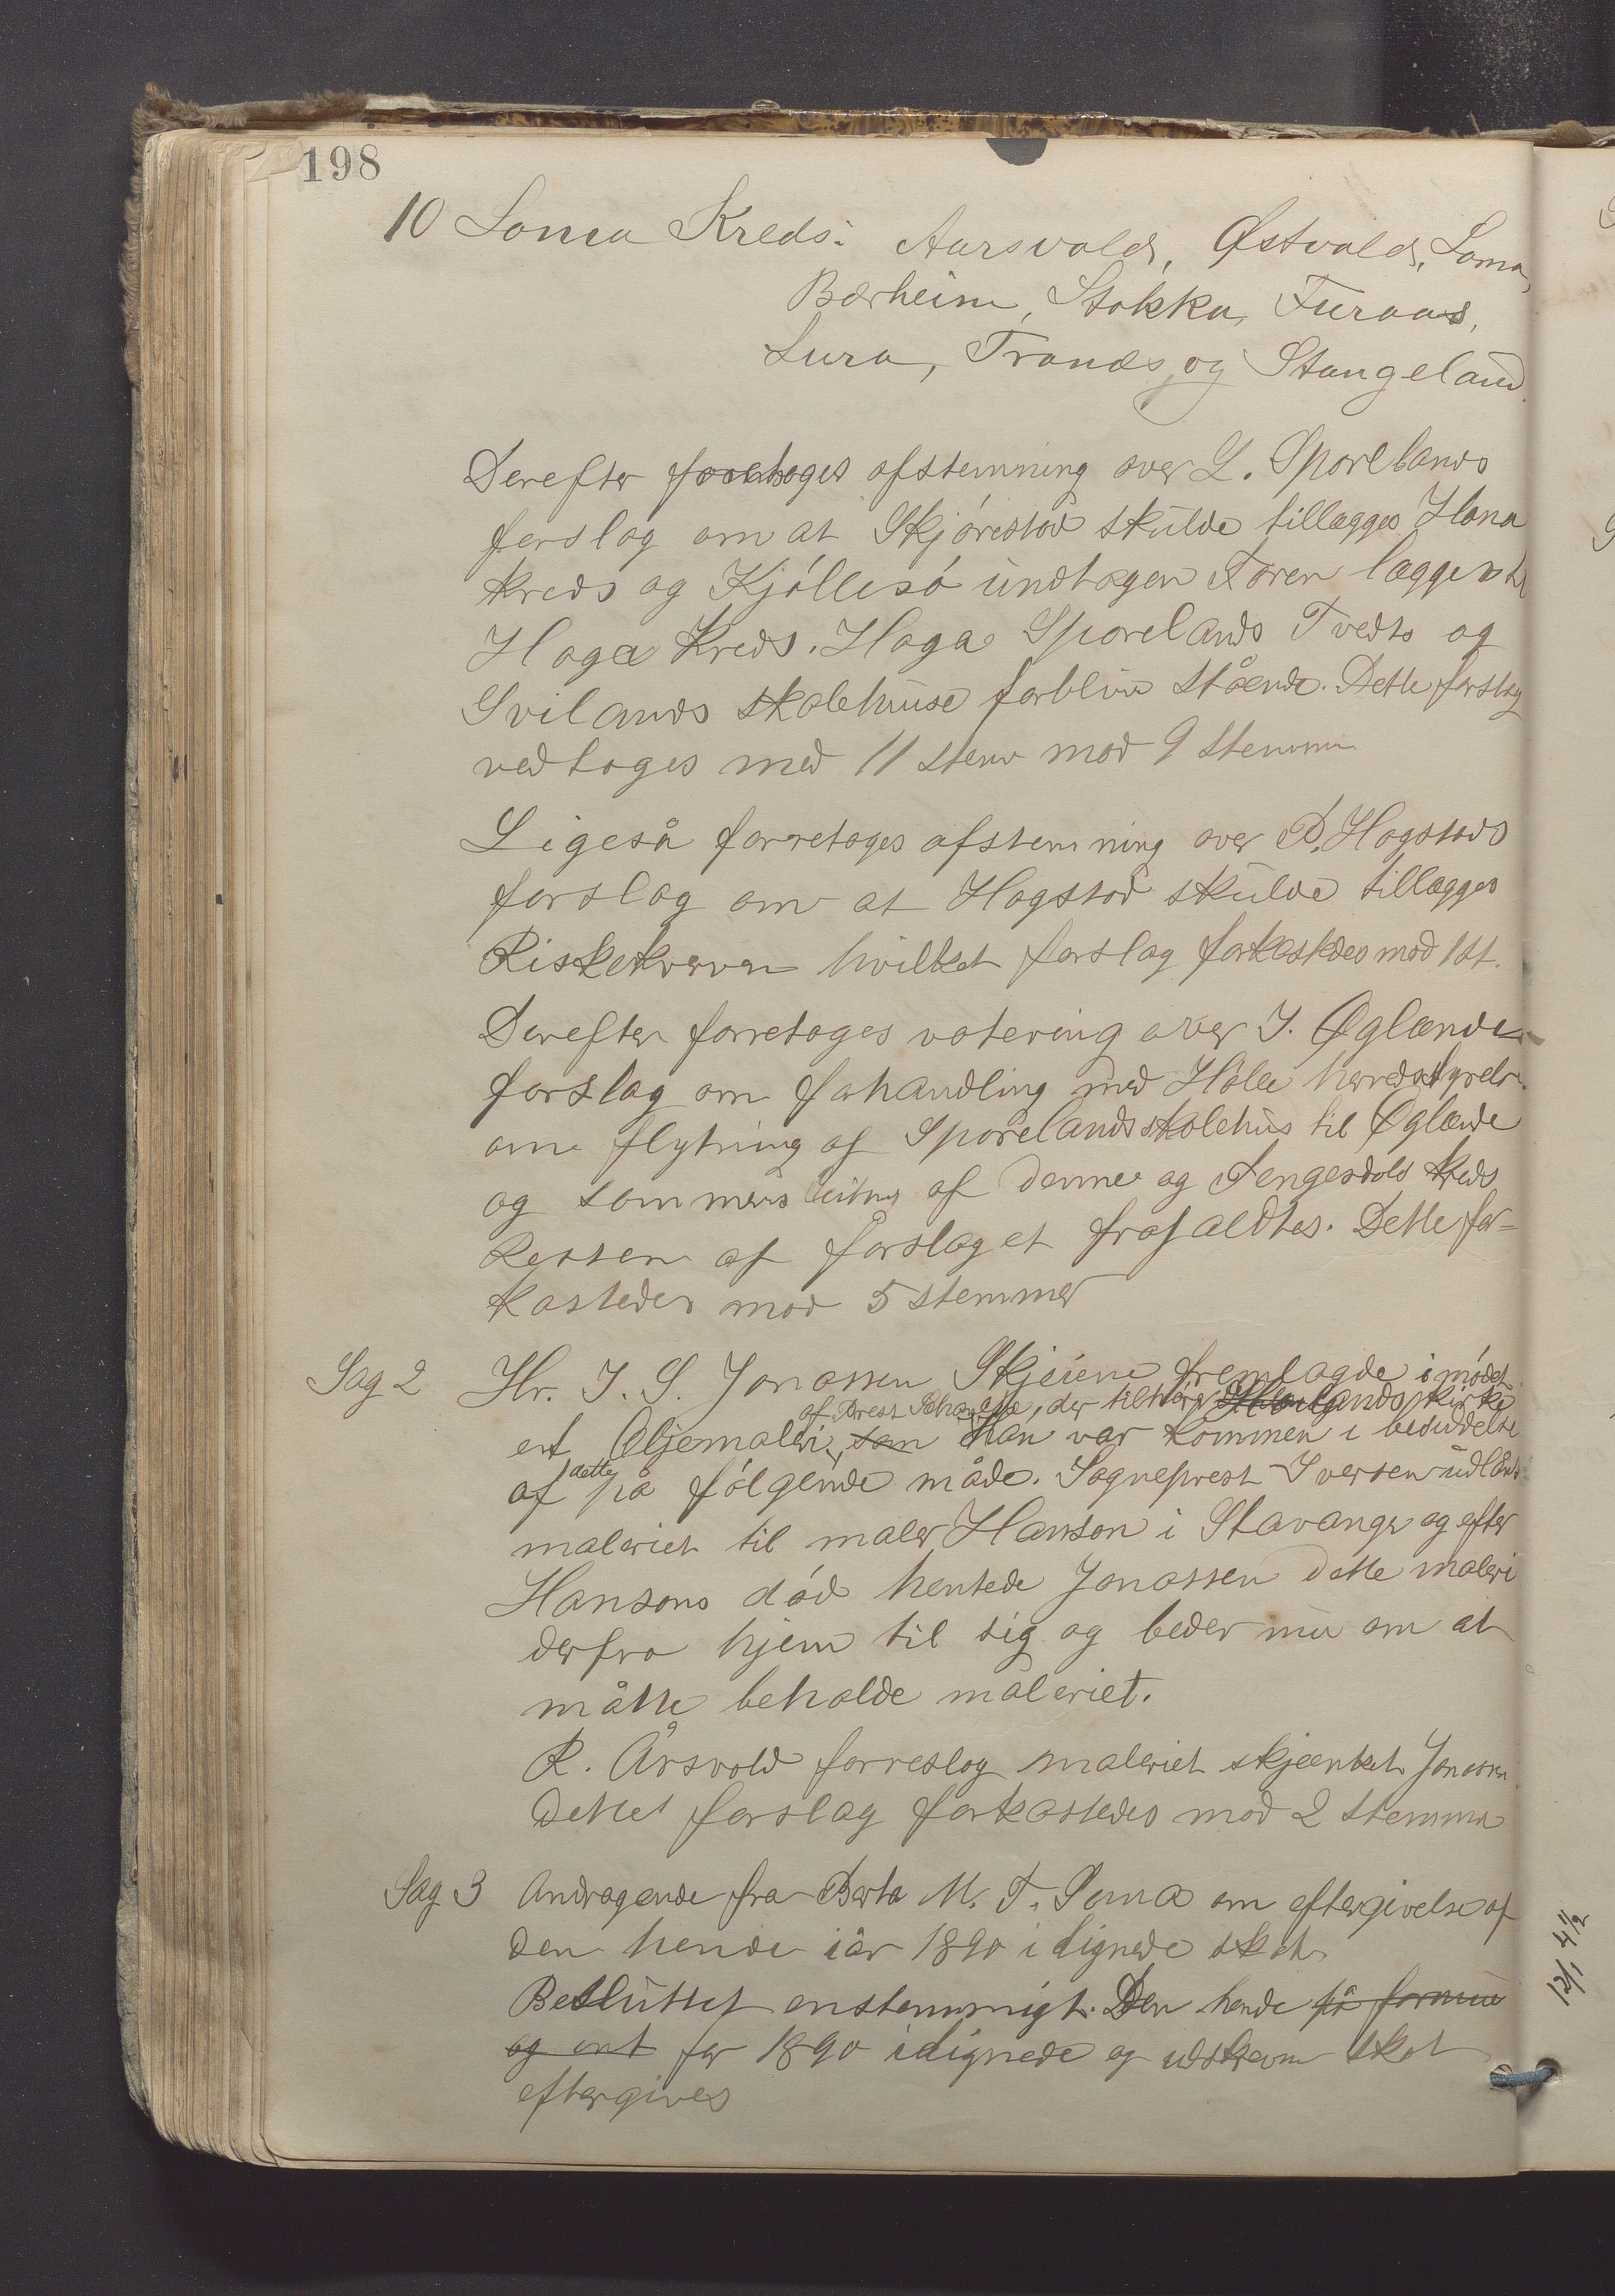 198
10 Soma Kreds: Aarsvold, Østvold, Soma,
Bærheim, Stokka, Furaas,
Lura, Tronds og Stangeland.
Derefter foretoges afstemning over L. Sporelands
forslag om at Skjórestad skulde tillægges Hana
kreds og Kjóllesó undtagen Foren lægges til
Hoga Kreds. Hoga Sporelands Tvedts og
Svilands skolehuse forblive stående. Dette forslag
vedtoges med 11 stem mod 9 stemmer
Ligeså forretoges afstemning over P. Hogstads
forslag om at Hogstad skulde tillægges
Riskekverven hvilket forslag forkastedes mod 1 st.
Derefter forretoges votering over I. Øglænds
forslag om forhandling med Hóle herredstyrelse
om flytning af Sporelands skolehus til Øglænde
og sammenslutning af denne og Sengesdals kreds
Resten af forslaget frafaldtes. Dette for-
kastedes mod 5 stemmer
Sag 2 Hr. I. S. Jonassen Skjeiene fremlagde i mødet
af Prest , der tilhører Høilands kirke
ent Oljemaleri, som han var kommen i besiddelse
af dette på fólgende måde. Sogneprest Iversen udlånte
maleriet til maler Hanson i Stavanger og efter
Hansons dód hentede Jonassen dette maleri
derfra hjem til sig og beder nu om at
måtte beholde maleriet.
R. Årsvold forreslog maleriet skjænket Jonassen
Dettet forslag forkastedes mod 2 stemmer
Sag 3 Andragende fra Berta M. T. Soma om eftergivelse af
den hende iår 1890 ilignede skat
Besluttet enstemmigt. Den hende på formue
og ent for 1890 ilignede og udskrevne skat
eftergives
12/1 4 1/2